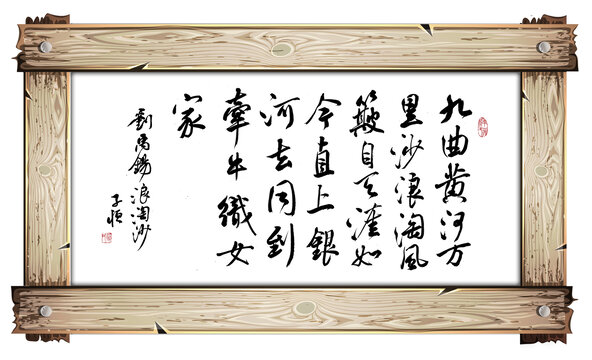 九曲黄河万
里沙浪淘风
簸自天涯如
今直上银
河去同到
牵牛织女
家
刘禹锡浪淘沙
子恒